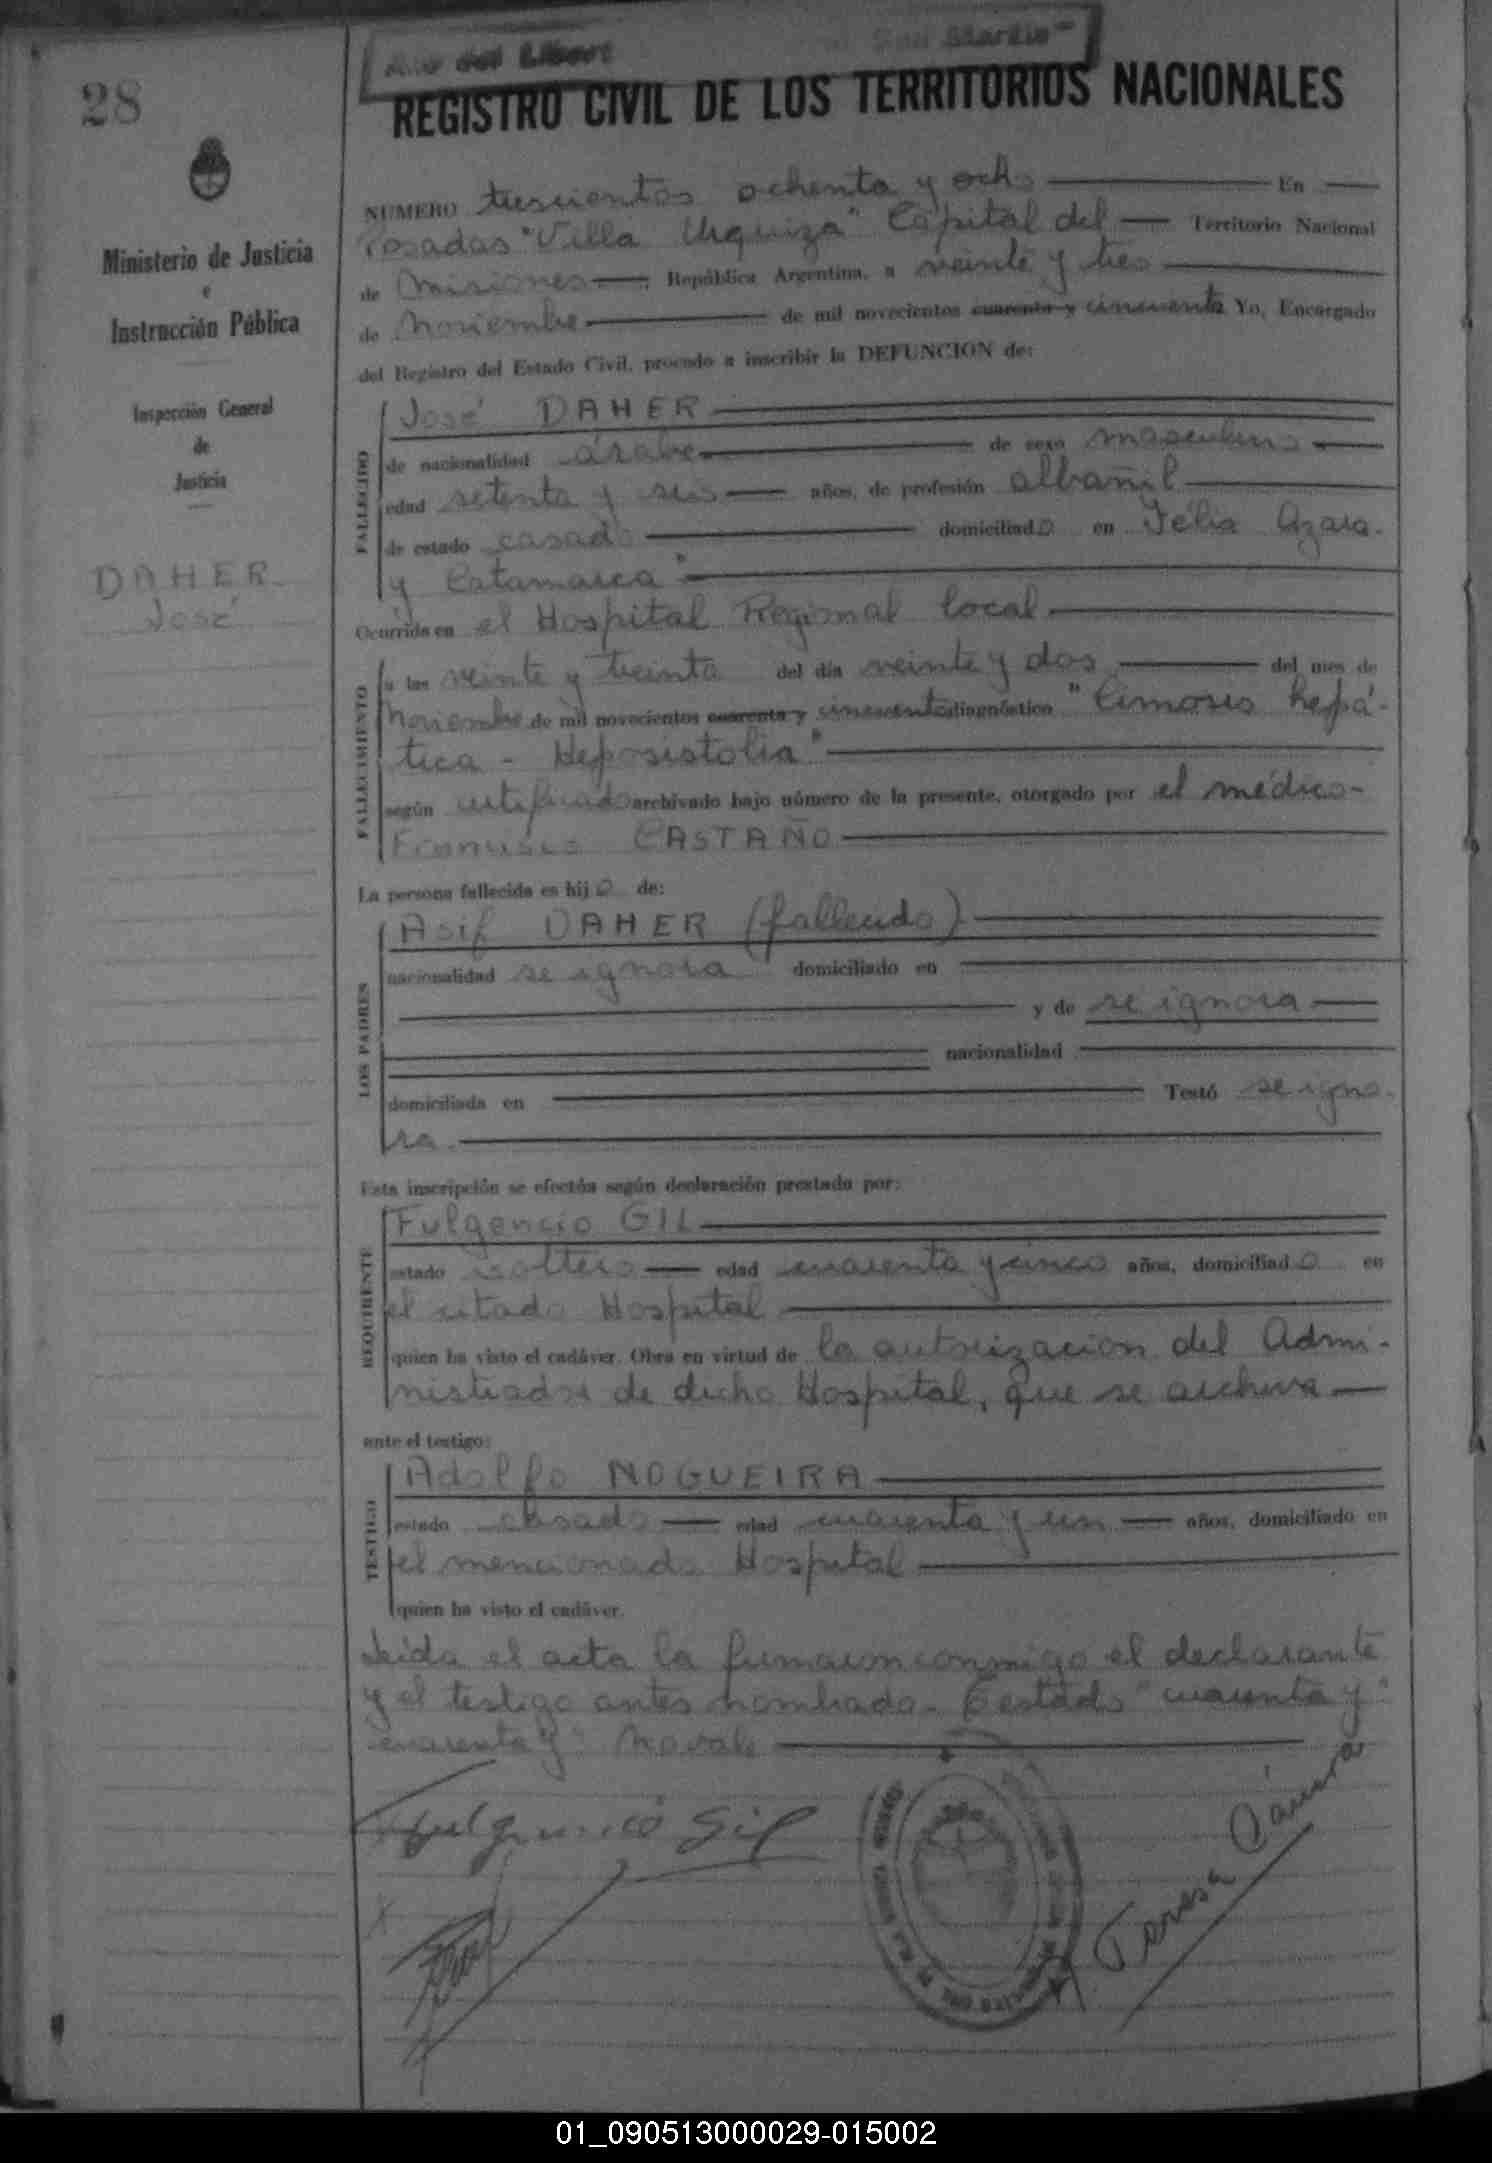 28
Año del Libert San Martín"
REGISTRO CIVIL DE LOS TERRITORIOS NACIONALES
Ministerio de Justicia
e
Instrucción Pública
Inspección General
de
Justicia
DAHER
José
NUMERO trescientos ochenta y ocho En
Posadas "Villa Urquiza" Capital del Territorio Nacional
de Misiones, República Argentina, a veinte y tres
de Noviembre de mil novecientos cuarenta y cincuenta Yo, Encargado
del Registro del Estado Civil, procedo a inscribir la DEFUNCION de:
FALLECIDO
José DAHER
de nacionalidad árabe de sexo masculino
edad setenta y seis años, de profesión albañil
de estado casado domiciliado en Félix Azara
y Catamarca"
Ocurrida en el Hospital Regional local
FALLECIMIENTO
a las veinte y treinta del día veinte y dos del mes de
Noviembre de mil novecientos cuarenta y cincuenta diagnóstico "Cirrosis hepá-
tica - Heposistolia"
según certificado archivado bajo número de la presente, otorgado por el médico
Francisco CASTAÑO
La persona fallecida es hijo de:
LOS PADRES
Asif DAHER (fallecido)
nacionalidad se ignora domiciliado en
y de se ignora
nacionalidad
domiciliada en Testó se igno-
ra.
Esta inscripción se efectúa según declaración prestada por:
REQUIRENTE
Fulgencio GIL
estado soltero edad cuarenta y cinco años, domiciliado en
el citado Hospital
quien ha visto el cadáver. Obra en virtud de la autorización del Admi-
nistrador de dicho Hospital, que se archiva
ante el testigo:
TESTIGO
Adolfo NOGUEIRA
estado casado edad cuarenta y un años, domiciliado en
el mencionado Hospital
quien ha visto el cadáver.
Leída el acta la firmaron conmigo el declarante
y el testigo antes nombrado. Testado "cuarenta y"
"cuarenta y" No vale
Fulgencio Gil
Teresa Cámara
01_090513000029-015002